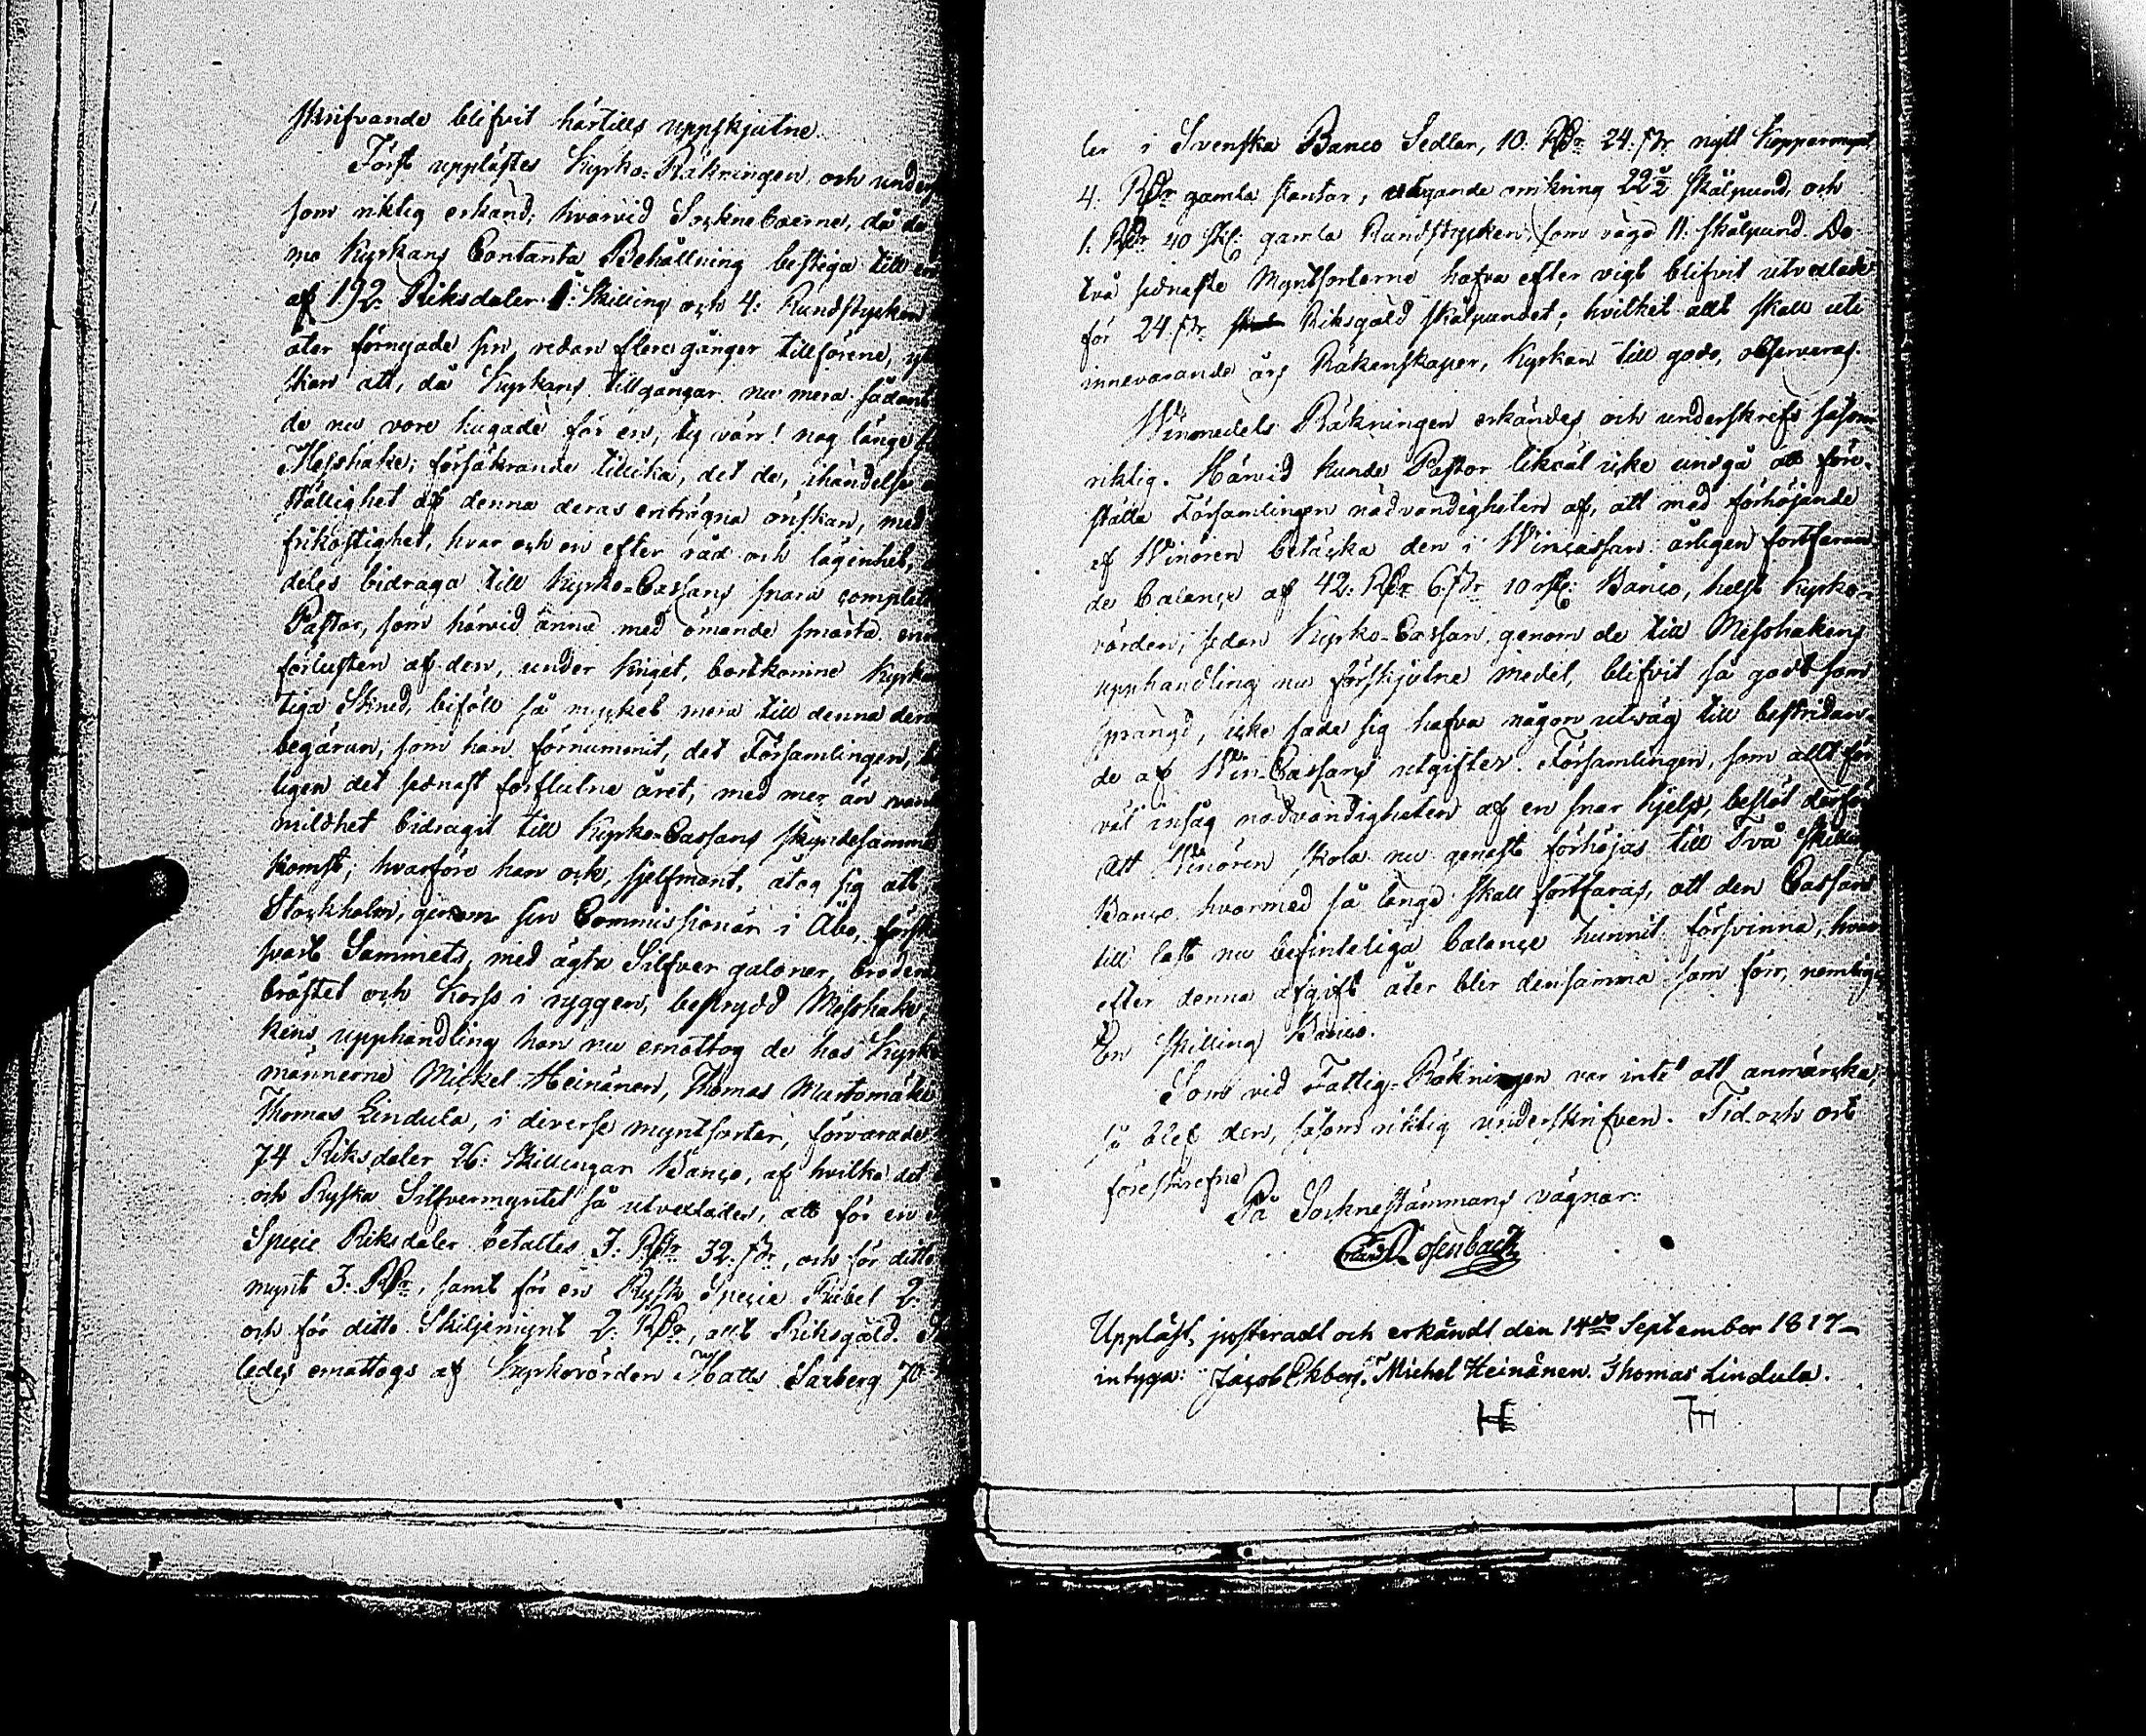 skrifvande blifvit härtills uppskjutne.
Först upplästes Kyrko-Räkningen, och under
som riktig erkänd; hvarvid Sockneboerne, då de
ma Kyrkans Contanta Behållning bestiga till en
af 192. Riksdaler 1: Skilling och 4: Rundstycken
åter förnyade sin redan flere gånger tillförene, yt
skan att, då Kyrkans tillgångar nu mera sådant
de nu vore hugade för en, ty värr! nog länge
Messhake; försäkrande tillika, det de, ihändelse
ställighet af denna deras enträgna önskan, med
frikostighet, hvar och en efter råd och lägenhet,
deles bidraga till Kyrko-Cassans snara complett
Pastor, som härvid ännu med ömande smärta
förlusten af den, under kriget, bortkomne Kyrko
tiga Skrud, biföll så mycket mera till denna dera
begäran, som han förnummit, det Församlingen,
ligen det sednast förflutne året, med mer än van
mildhet bidragit till Kyrko-Cassans skyndesamma
komst; hvarföre han ock, sjelfmant, åtog sig att
Stockholm, genom sin Commissionär i Åbo, förska
svart Sammets, med ägta Silfver galoner, brodera
bröstet och Korss i ryggen, beprydd Messhake,
kens upphandling han nu emottog de hos Kyrko
männerne Mickel Heinänen, Thomas Muntomäki
Thomas Lindula, i diverse myntsorter, förvarade
74 Riksdaler 26: Skillingar Banco, af hvilka det
och Ryska Silfvermyntet så utvexlades, att för en
Specie Riksdaler betaltes 3. RDr 32. sk., och för ditto
mynt 3. RDr, samt för en Rysk Specie Rubel 2.
och för ditto Skiljemynt 2. RDr, allt Riksgäld.
ledes emottogs af Kyrkovärden Matts Saxberg 70
ler i Svenska Banco Sedlar, 10. RDr 24. sk. nytt Kopparmynt,
4. RDr gamla slantar, vägande omkring 22½ Skålpund, och
1. RDr 40 sk: gamla Rundstycken, som vägd 11. Skålpund. De
två sednaste Myntsorterne hafva efter vigt blifvit utvexlade
för 24. sk. Riksgäld Skålpundet; hvilket allt skall uti
innevarande års Räkenskaper, Kyrkan till godo, observeras.
Winmedels Räkningen erkändes och underskrefs såsom
riktig. Härvid kunde Pastor likväl icke undgå att före-
ställa Församlingen nödvändigheten af, att med förhöjande
af Winören betäcka den i Wincassan årligen fortfaran
de balance af 42. RDr 6. sk. 10 rst: Banco, helst Kyrko-
värden, sedan Kyrko-Cassan, genom de till Messhakens
upphandling nu förskjutne medel, blifvit så godt som
sprängd, icke sade sig hafva någon utväg till bestridan-
de af Win-Cassans utgifter. Församlingen, som allt för
väl insåg nödvändigheten af en snar hjelp, beslöt derföre
att Winören skola nu genast förhöjas till Två Skilling
Banco hvarmed så länge skall fortfaras, att den Cassan
till last nu befinteliga balance hunnit försvinna, hvar
efter denna afgift åter blir densamma som förr, nemligen
En Skilling Banco.
Som vid Fattig-Räkningen var intet att anmärcka,
så blef den, såsom riktig underskrifven. Tid och ort
föreskrefne
På Socknestämmans vägnar:
Rosenbach
Uppläst, justeradt och erkändt den 14de September 1817-
intyga: Jacob Ekberg. Michel Heinänen. Thomas Lindula.